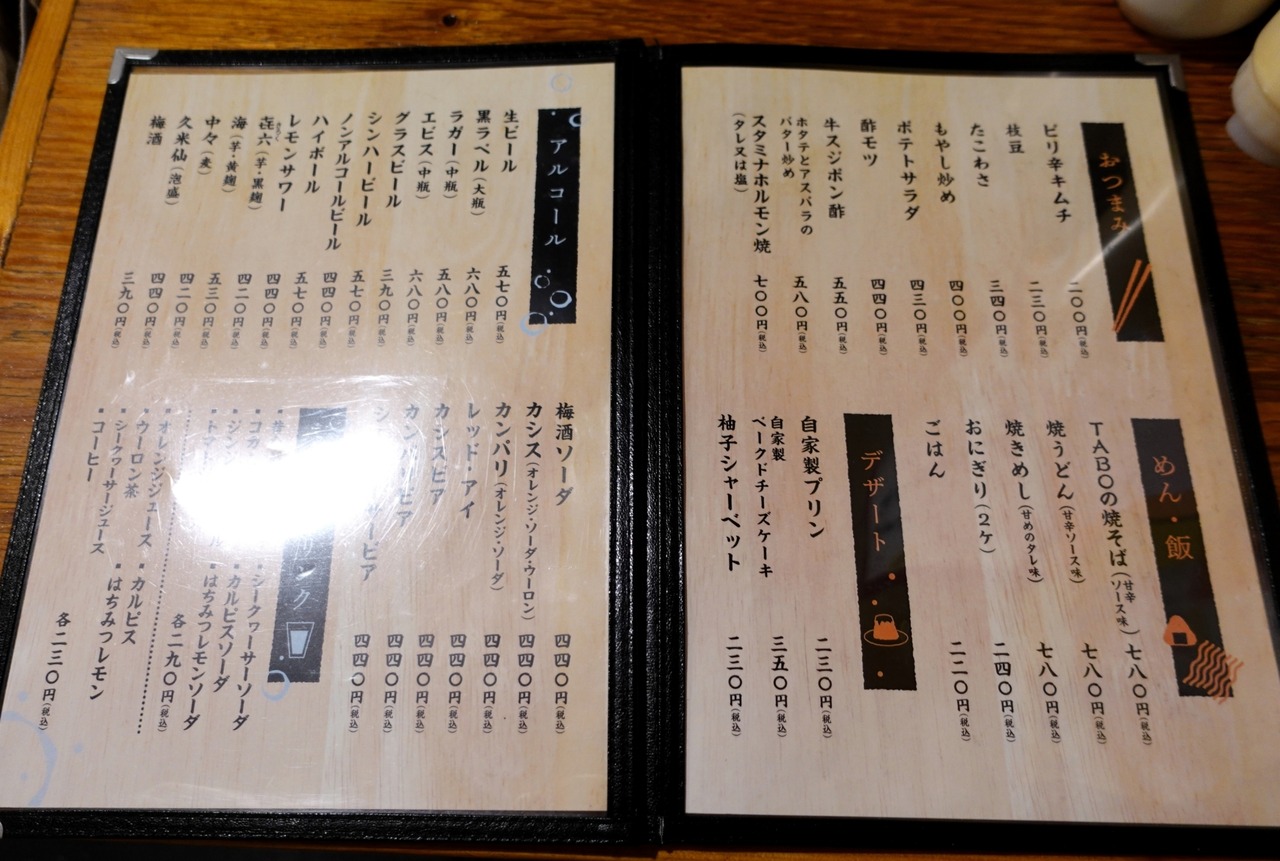 おつまみ
ピリ辛キムチ 二〇〇円(税込)
枝豆 二三〇円(税込)
たこわさ 三四〇円(税込)
もやし炒め 四〇〇円(税込)
ポテトサラダ 四三〇円(税込)
酢モツ 四四〇円(税込)
牛スジポン酢 五五〇円(税込)
ホタテとアスパラの
バター炒め 五八〇円(税込)
スタミナホルモン焼
(タレ又は塩) 七〇〇円(税込)
めん・飯
TABOの焼そば(甘辛ソース味) 七八〇円(税込)
焼うどん(甘辛ソース味) 七八〇円(税込)
焼きめし(甘めのタレ味) 七八〇円(税込)
おにぎり(2ケ) 二四〇円(税込)
ごはん 二二〇円(税込)
デザート
自家製プリン 二三〇円(税込)
自家製
ベークドチーズケーキ 三五〇円(税込)
柚子シャーベット 二三〇円(税込)
アルコール
生ビール 五七〇円(税込)
黒ラベル(大瓶) 六八〇円(税込)
ラガー(中瓶) 五八〇円(税込)
エビス(中瓶) 六八〇円(税込)
グラスビール 三九〇円(税込)
シンハービール 五七〇円(税込)
ノンアルコールビール 四四〇円(税込)
ハイボール 五七〇円(税込)
レモンサワー 四四〇円(税込)
㐂六(芋・黒麹) 四二〇円(税込)
海(芋・黄麹) 五三〇円(税込)
中々(麦) 四二〇円(税込)
久米仙(泡盛) 四四〇円(税込)
梅酒 三九〇円(税込)
梅酒ソーダ 四四〇円(税込)
カシス(オレンジ・ソーダ・ウーロン) 四四〇円(税込)
カンパリ(オレンジ・ソーダ) 四四〇円(税込)
レッド・アイ 四四〇円(税込)
カシスビア 四四〇円(税込)
カンパリビア 四四〇円(税込)
四四〇円(税込)
リンク
・シークヮーサーソーダ
・カルピスソーダ
・はちみつレモンソーダ
各二九〇円(税込)
・オレンジジュース ・カルピス
・ウーロン茶 ・はちみつレモン
・シークヮーサージュース
・コーヒー
各二三〇円(税込)